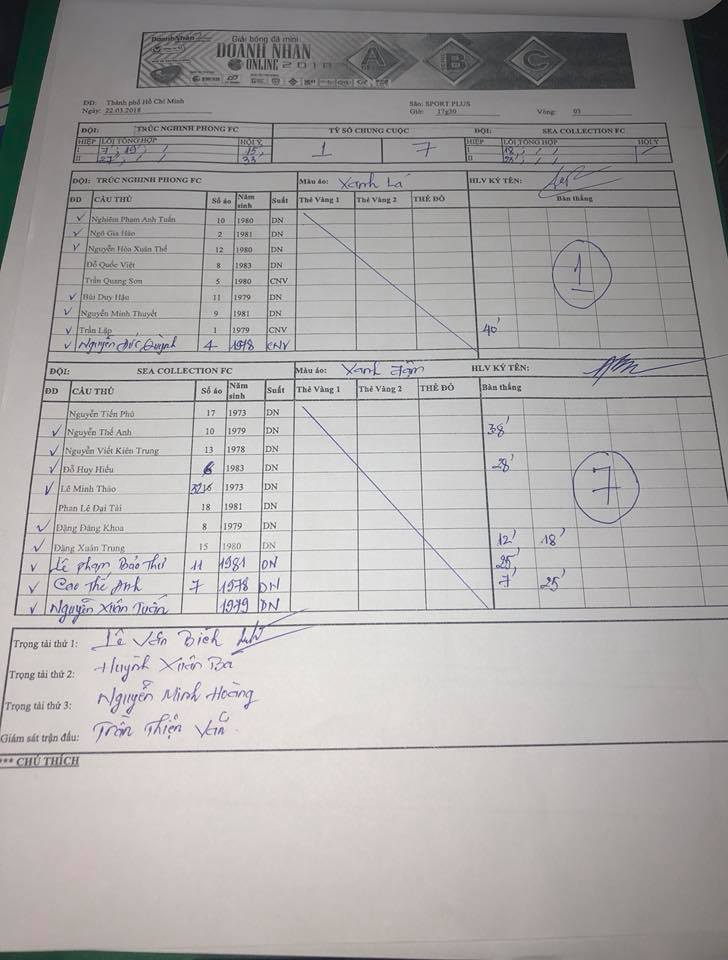 DoanhNhân
Giải bóng đá mini
DOANH NHÂN
ONLINE 2018
A B C
ĐĐ: Thành phố Hồ Chí Minh Sân: SPORT PLUS
Ngày: 22.03.2018 Giờ: 17g30 Vòng: 03
ĐỘI: TRÚC NGHINH PHONG FC TỶ SỐ CHUNG CUỘC ĐỘI: SEA COLLECTION FC
HIỆP LỖI TỔNG HỢP HỘI Ý 1 7 HIỆP LỖI TỔNG HỢP HỘI Ý
I 7, 19, , 15, I 18, , ,
II 27, , , 33, II 23, , ,
ĐỘI: TRÚC NGHINH PHONG FC Màu áo: Xanh Lá HLV KÝ TÊN:
ĐD CẦU THỦ Số áo Năm sinh Suất Thẻ Vàng 1 Thẻ Vàng 2 THẺ ĐỎ Bàn thắng
✓ Nghiêm Phạm Anh Tuấn 10 1980 DN
✓ Ngô Gia Hào 2 1981 DN
✓ Nguyễn Hòa Xuân Thế 12 1980 DN
Đỗ Quốc Việt 8 1983 DN
Trần Quang Sơn 5 1980 CNV 1
✓ Bùi Duy Hậu 11 1979 DN
✓ Nguyễn Minh Thuyết 9 1981 DN
✓ Trần Lập 1 1979 CNV 40'
✓ Nguyễn Đức Quỳnh 4 1978 CNV
ĐỘI: SEA COLLECTION FC Màu áo: Xanh Đậm HLV KÝ TÊN:
ĐD CẦU THỦ Số áo Năm sinh Suất Thẻ Vàng 1 Thẻ Vàng 2 THẺ ĐỎ Bàn thắng
Nguyễn Tiến Phú 17 1973 DN
✓ Nguyễn Thế Anh 10 1979 DN 38'
✓ Nguyễn Viết Kiên Trung 13 1978 DN
✓ Đỗ Huy Hiếu 6 1983 DN 28'
✓ Lê Minh Thảo 1973 DN 7
Phan Lê Đại Tài 18 1981 DN
✓ Đặng Đăng Khoa 8 1979 DN
✓ Đặng Xuân Trung 15 1980 DN 12' 18'
✓ Lê Phạm Bảo Thư 11 1981 DN 25'
✓ Cao Thế Anh 7 1978 DN 7' 25'
✓ Nguyễn Xuân Tuấn 1979 DN
Trọng tài thứ 1: Lê Văn Biếh
Trọng tài thứ 2: Huỳnh Xuân Ba
Trọng tài thứ 3: Nguyễn Minh Hoàng
Giám sát trận đấu: Trần Thiện Văn
*** CHÚ THÍCH